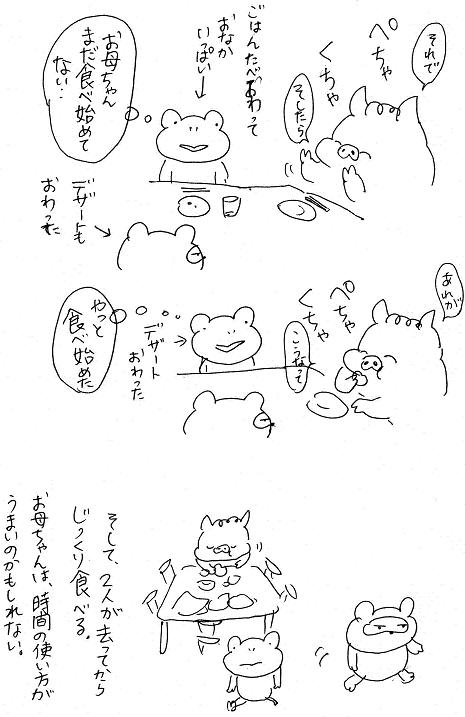 それで
ぺちゃ
くちゃ
そしたら
ごはんたべおわって
おなか
いっぱい→
お母ちゃん
まだ食べ始めて
ない…
デザートも
おわった
あれが
ぺちゃ
くちゃ
こうなって
デザート
おわった
やっと
食べ始めた
そして、2人が去ってから
じっくり食べる。
お母ちゃんは、時間の使い方が
うまいのかもしれない。